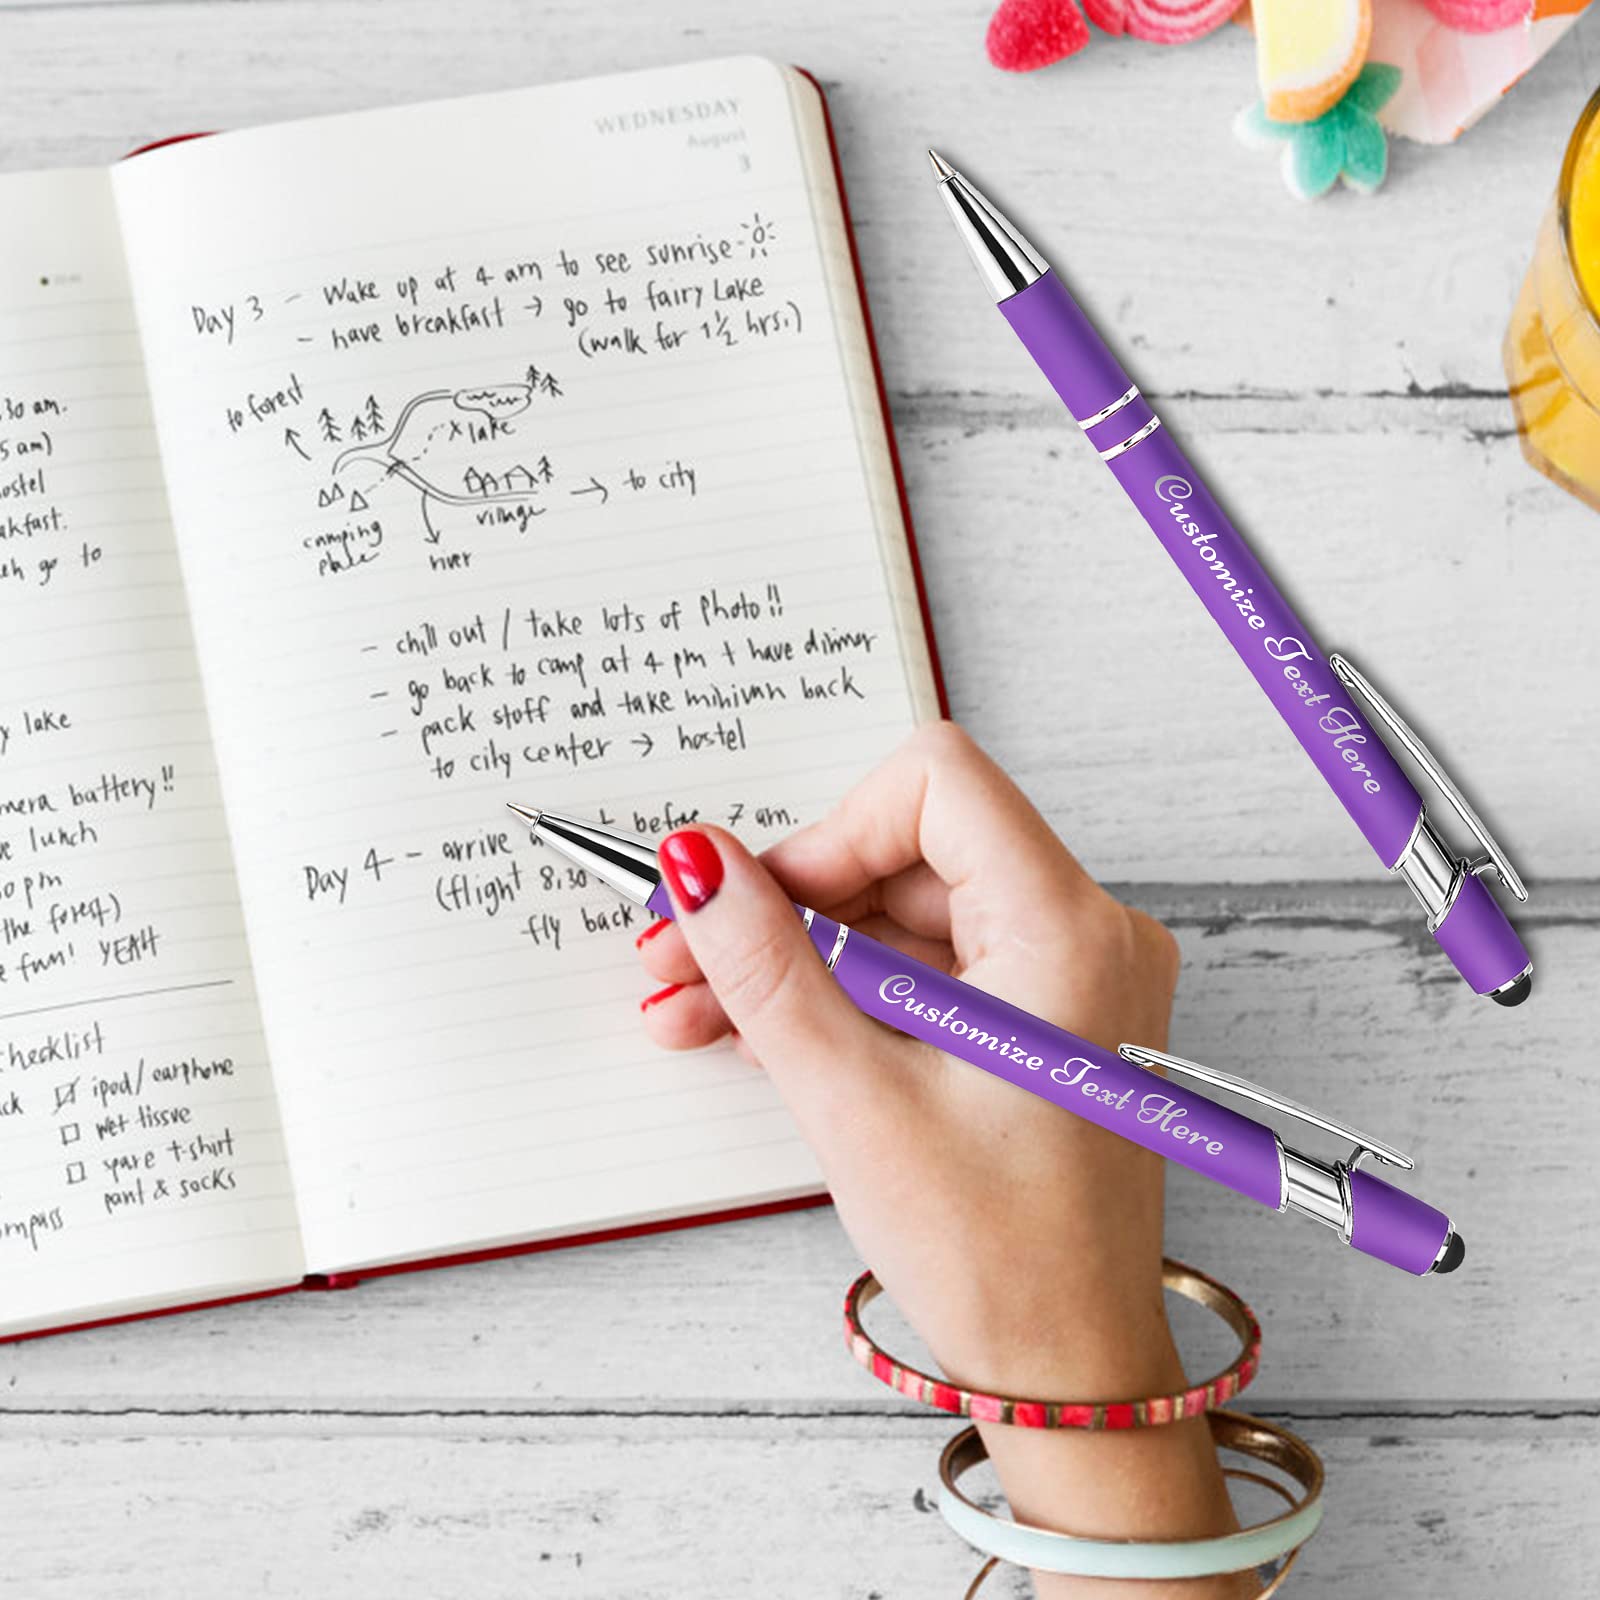 .30 am.
5 am)
ostel
akfast.
eh go to
y lake
mera battery!!
e lunch
0 pm
the forest)
e fun! YEAH
hecklist
ck ipod/earphone
wet tissue
spare t-shirt
pant & socks
ompass
WEDNESDAY
August
3
Day 3 - Wake up at 4 am to see sunrise
- have breakfast → go to fairy Lake
(walk for 1 1/2 hrs.)
to forest
x lake
→ to city
village
camping
place
river
- chill out / take lots of photo!!
- go back to camp at 4 pm + have dinner
- pack stuff and take minivan back
to city center → hostel
Day 4 - arrive before 7 am.
(flight 8,30
fly back
Customize Text Here
Customize Text Here